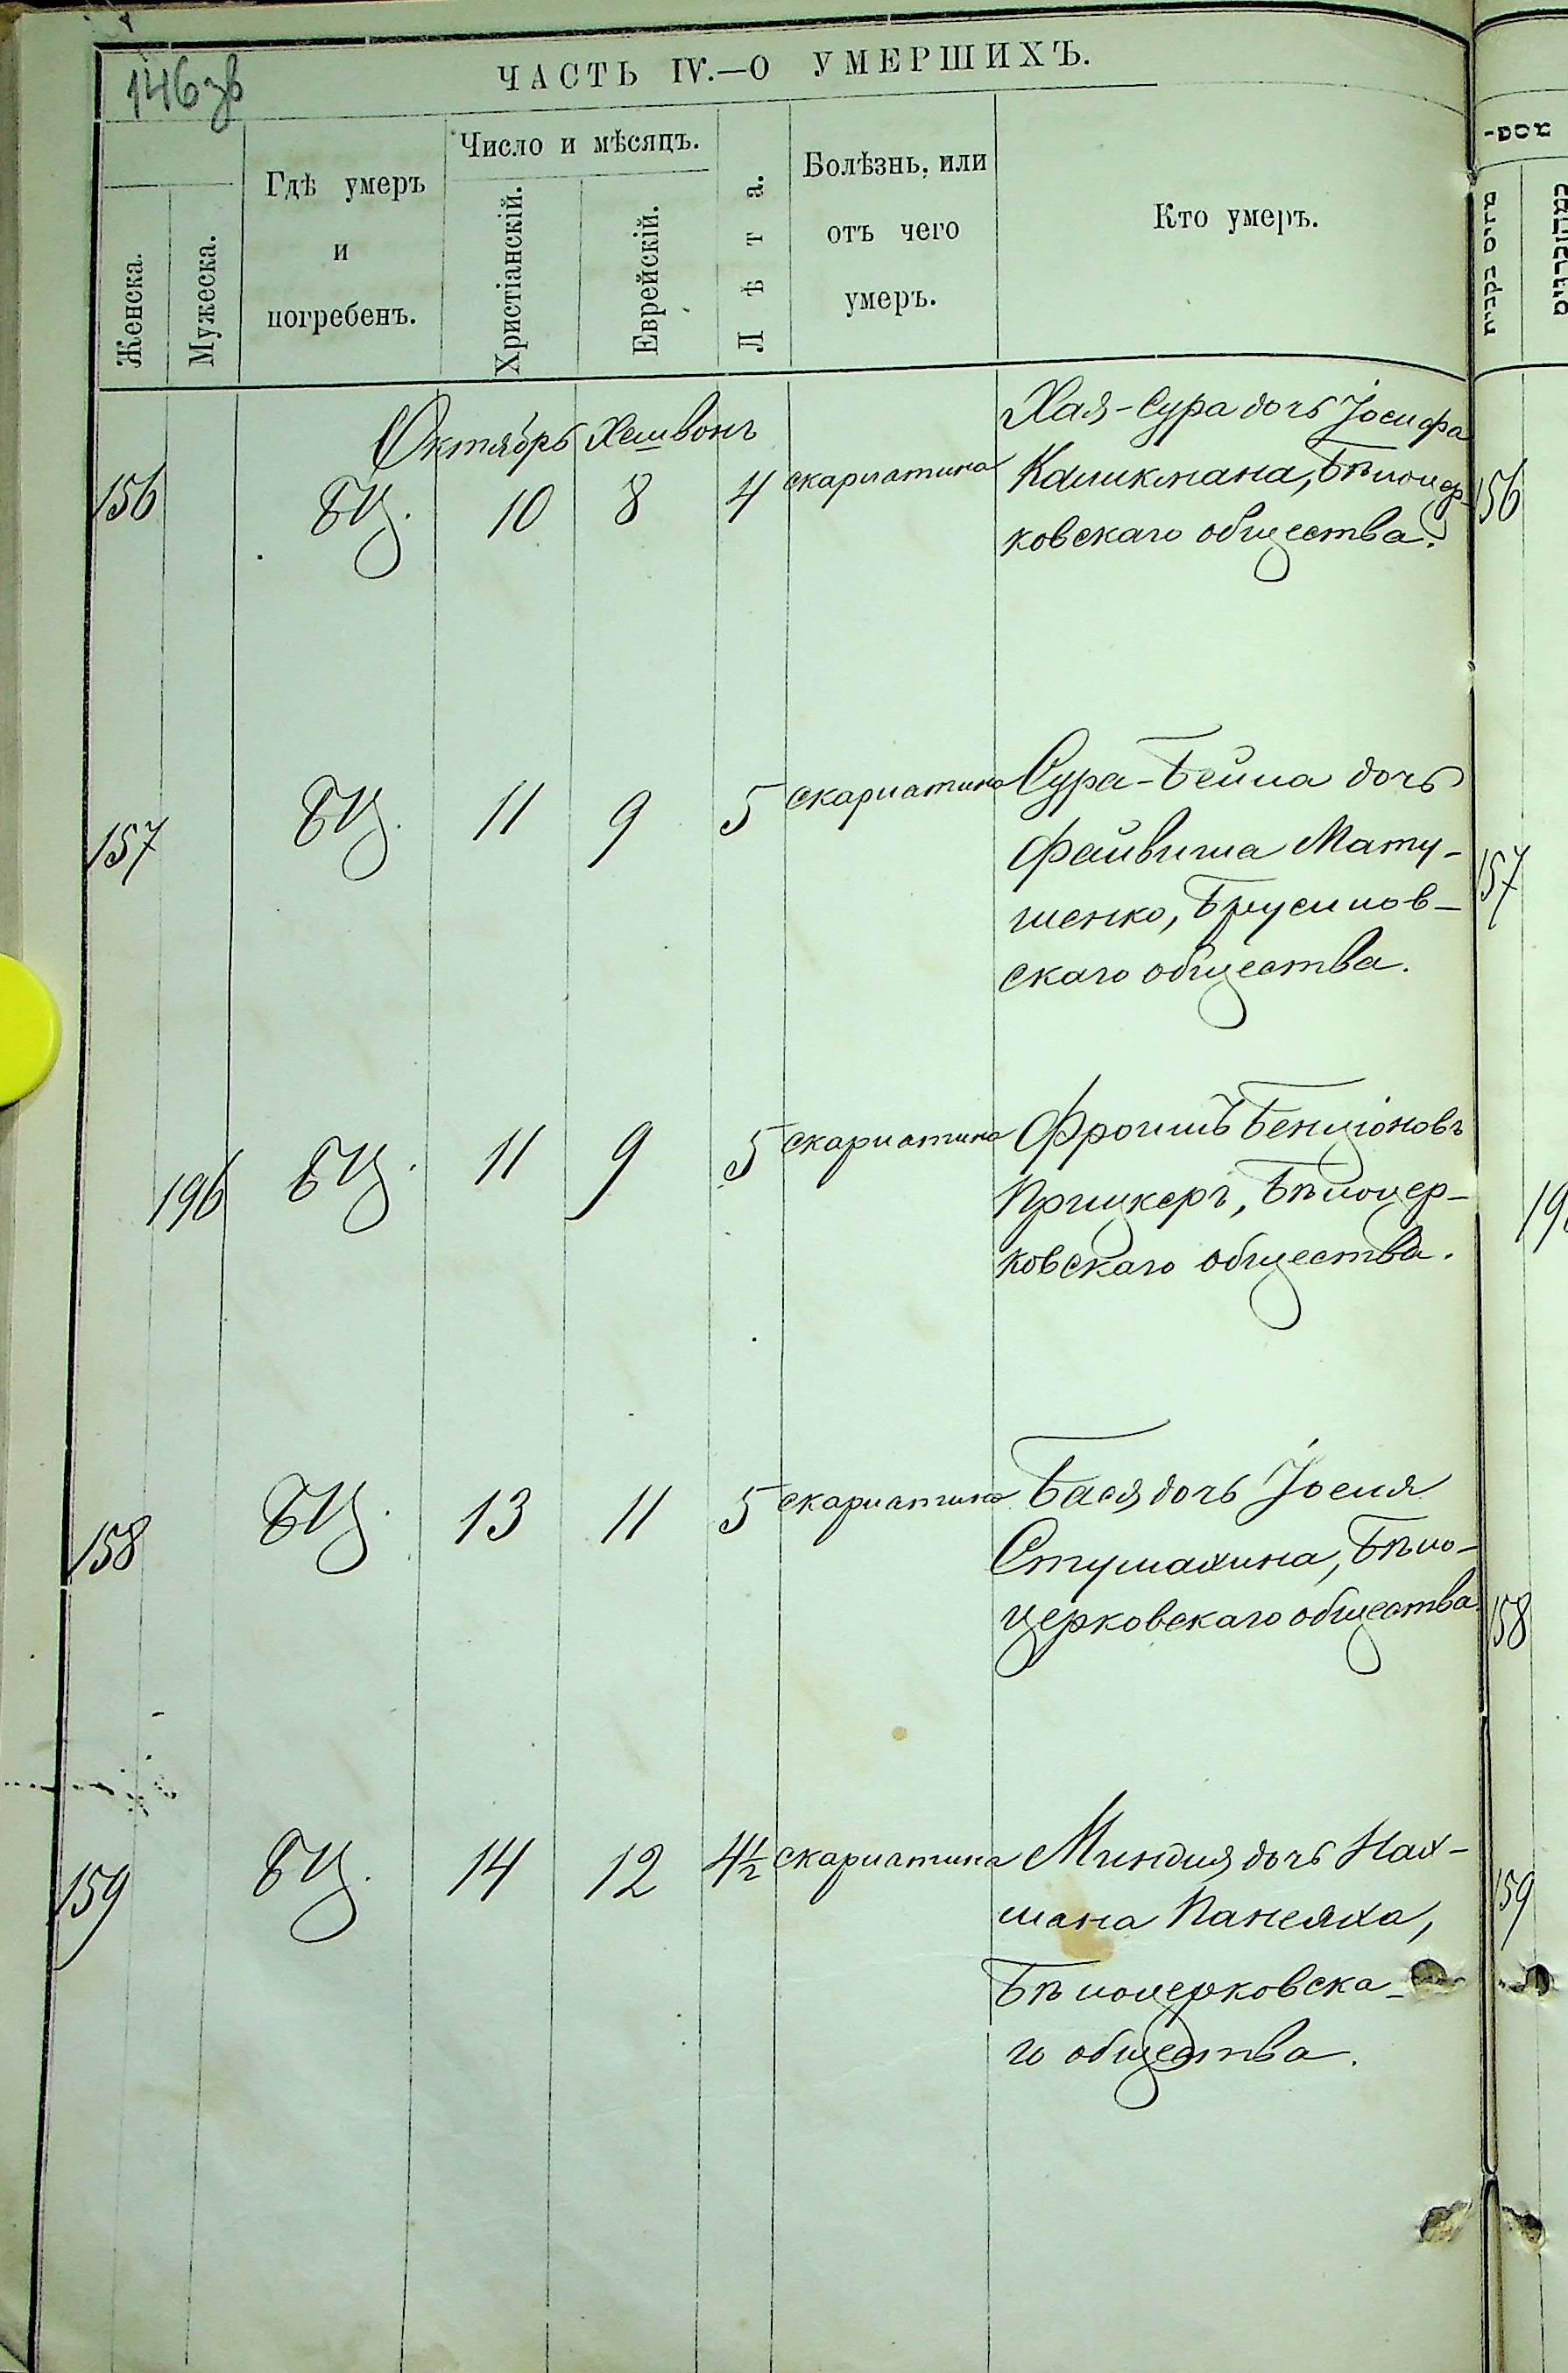 146зв
ЧАСТЬ IV.—О УМЕРШИХЪ.
Женска.
Мужеска.
Гдѣ умеръ
и
погребенъ.
Число и мѣсяцъ.
Христіанскій.
Еврейскій.
Лѣта.
Болѣзнь, или
отъ чего
умеръ.
Кто умеръ.
Октябрь Хешвонъ
156 БЦ. 10 8 4 скарлатина
Хая-Сура дочь Іосифа
Каликмана, Бѣлоцер-
ковскаго общества.
156
157 БЦ. 11 9 5 скарлатина
Сура-Бейла дочь
Файвиша Мату-
шенко, Брусилов-
скаго общества.
157
196 БЦ. 11 9 5 скарлатина
Фроимъ Бенціоновъ
Прицкеръ, Бѣлоцер-
ковскаго общества.
158 БЦ. 13 11 5 скарлатина
Бася дочь Іосия
Стумахина, Бѣло-
церковскаго общества.
158
159 БЦ. 14 12 4½ скарлатина
Миндля дочь Нах-
мана Панеяха,
Бѣлоцерковска-
го общества.
159